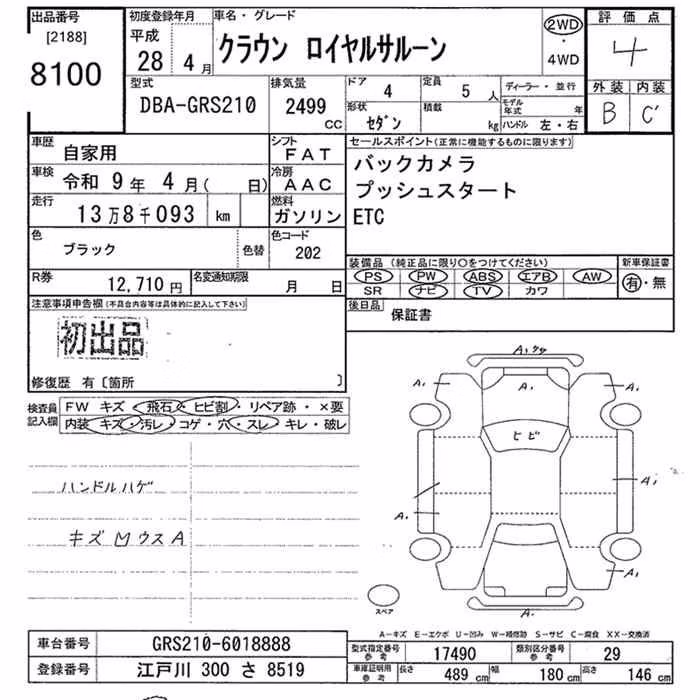 出品番号
[2188]
8100
初度登録年月
平成
28 4 月
車名・グレード
クラウン ロイヤルサルーン
2WD
・
4WD
評価点
4
外装 内装
B C'
型式
DBA-GRS210
排気量
2499
CC
ドア
4
定員
5 人
形状
ｾﾀﾞﾝ
積載
kg
ディーラー・並行
モデル年式 年
ハンドル 左・右
車歴
自家用
シフト
FAT
車検
令和 9 年 4 月( 日)
冷房
AAC
走行
13万8千093 km
燃料
ガソリン
色
ブラック
色替
色コード
202
R券
12,710 円
名変通知期限
月 日
セールスポイント(正常に機能するものに限ります)
バックカメラ
プッシュスタート
ETC
装備品(純正品に限り○をつけてください)
PS PW ABS エアB AW
SR ナビ TV カワ
新車保証書
有・無
後日品
保証書
注意事項申告欄(不具合内容等は具体的に記入して下さい)
初出品
修復歴 有〔箇所 〕
検査員
記入欄
FW キズ・飛石・ヒビ割・リペア跡・×要
内装 キズ・汚レ・コゲ・穴・スレ・キレ・破レ
ハンドルハゲ
キズ M ウス A
A, ｹｻ
A,
A,
A,
ヒビ
A,
A,
A,
A.
スペア
A－キズ E－エクボ U－凹み W－補修跡 S－サビ C－腐食 XX－交換済
車台番号
GRS210-6018888
登録番号
江戸川 300 さ 8519
型式指定番号
参考
17490
類別区分番号
参考
29
車庫証明用
参考
長さ
489 cm
幅
180 cm
高さ
146 cm